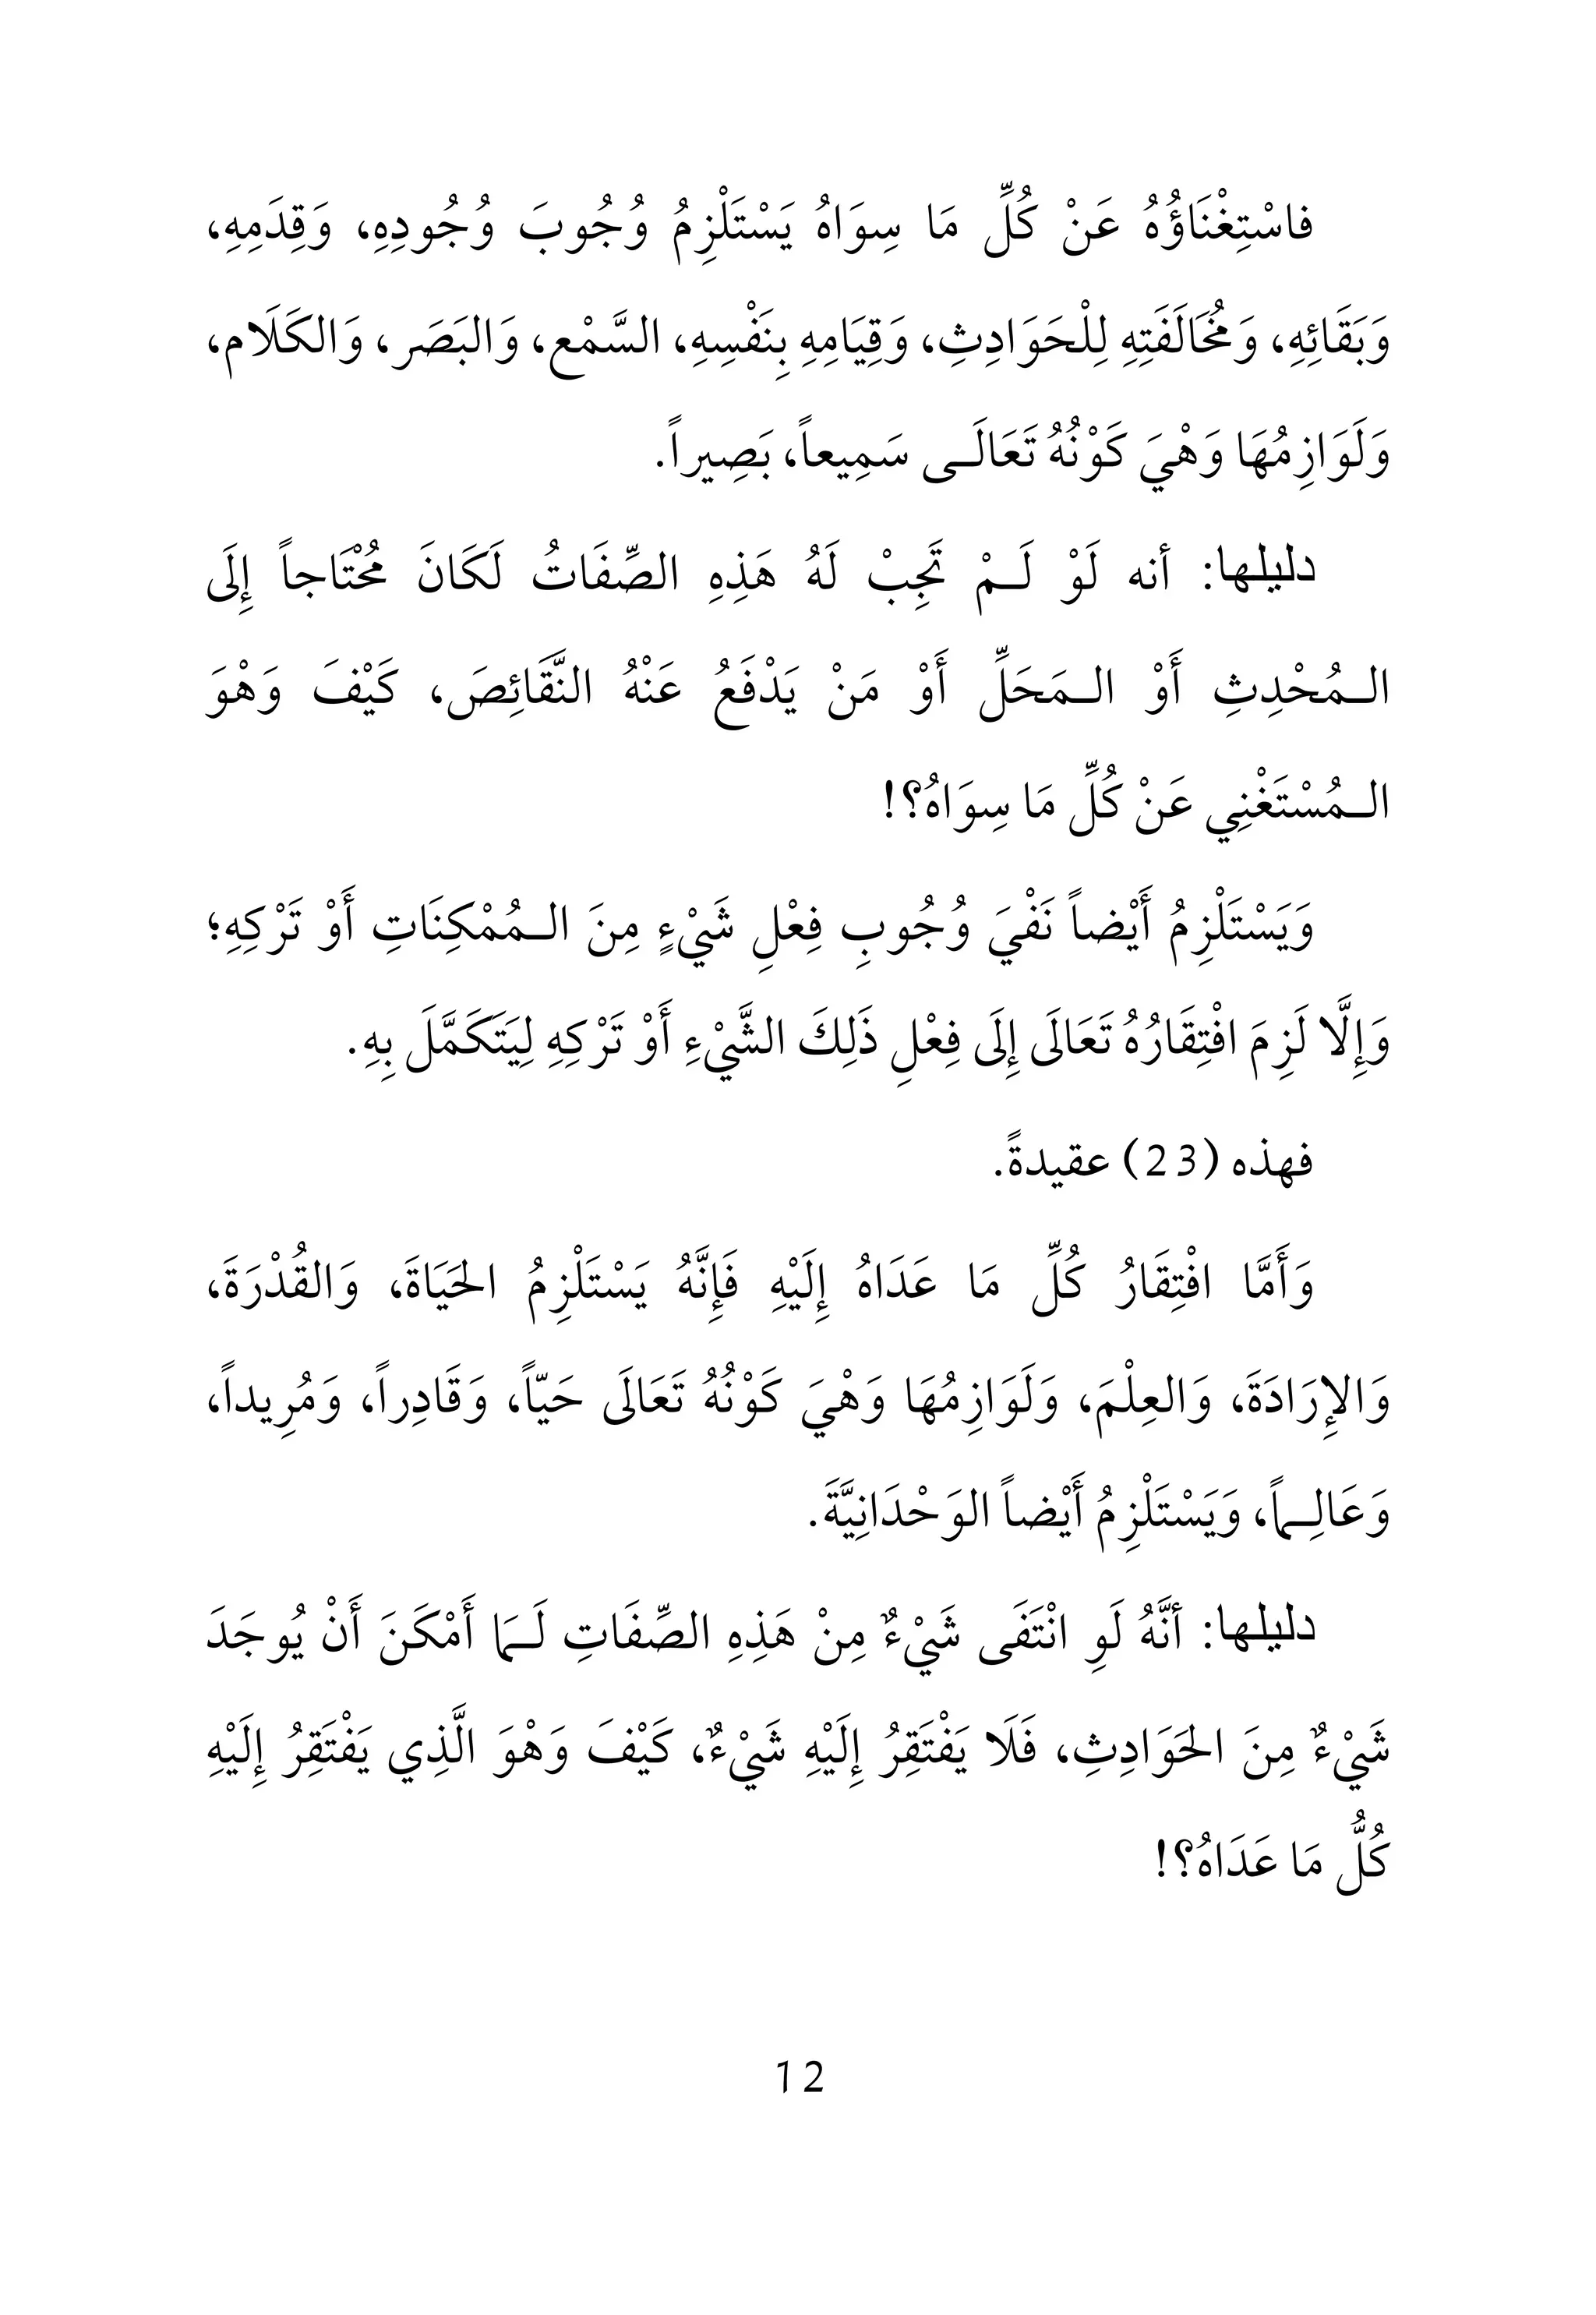 فاسْتِغْنَاؤُهُ عَنْ كُلِّ مَا سِوَاهُ يَسْتَلْزِمُ وُجُوبَ وُجُودِهِ، وَقِدَمِهِ،
وَبَقَائِهِ، وَمُخَالَفَتِهِ لِلْحَوَادِثِ، وَقِيَامِهِ بِنَفْسِهِ، السَّمْع، وَالبَصَر، وَالكَلَام،
وَلَوَازِمُهَا وَهْيَ كَوْنُهُ تَعَالَـى سَمِيعاً، بَصِيراً.
دليلها: أنه لَوْ لَـمْ تَجِبْ لَهُ هَذِهِ الصِّفَاتُ لَكَانَ مُحْتَاجاً إِلَى
الـمُحْدِثِ أَوْ الـمَحَلِّ أَوْ مَنْ يَدْفَعُ عَنْهُ النَّقَائِصَ، كَيْفَ وَهْوَ
الـمُسْتَغْنِي عَنْ كُلِّ مَا سِوَاهُ؟!
وَيَسْتَلْزِمُ أَيْضاً نَفْيَ وُجُوبِ فِعْلِ شَيْءٍ مِنَ الـمُمْكِنَاتِ أَوْ تَرْكِهِ؛
وَإِلَّا لَزِمَ افْتِقَارُهُ تَعَالَى إِلَى فِعْلِ ذَلِكَ الشَّيْءِ أَوْ تَرْكِهِ لِيَتَكَمَّلَ بِهِ.
فهذه (23) عقيدةً.
وَأَمَّا افْتِقَارُ كُلِّ مَا عَدَاهُ إِلَيْهِ فَإِنَّهُ يَسْتَلْزِمُ الحَيَاةَ، وَالقُدْرَةَ،
وَالإِرَادَةَ، وَالعِلْمَ، وَلَوَازِمُهَا وَهْيَ كَوْنُهُ تَعَالَى حَيّاً، وَقَادِراً، وَمُرِيداً،
وَعَالِـماً، وَيَسْتَلْزِمُ أَيْضاً الوَحْدَانِيَّةَ.
دليلها: أنَّهُ لَوِ انْتَفَى شَيْءٌ مِنْ هَذِهِ الصِّفَاتِ لَـمَا أَمْكَنَ أَنْ يُوجَدَ
شَيْءٌ مِنَ الحَوَادِثِ، فَلَا يَفْتَقِرُ إِلَيْهِ شَيْءٌ، كَيْفَ وَهْوَ الَّذِي يَفْتَقِرُ إِلَيْهِ
كُلُّ مَا عَدَاهُ؟!
12